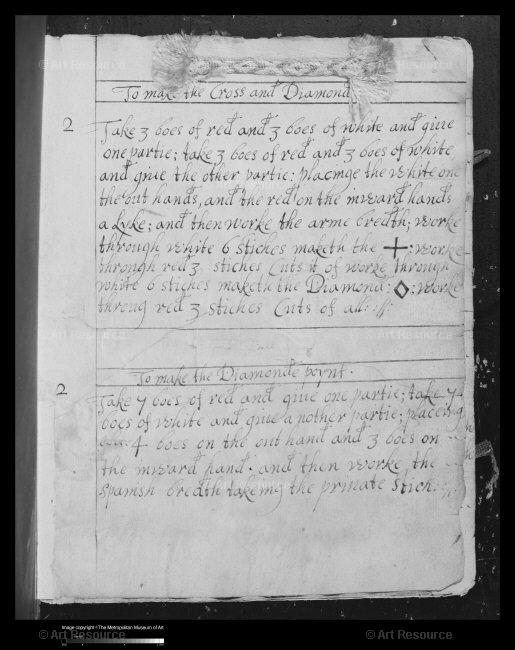 To make the Cross and Diamond
2 Take 3 boes of red and 3 boes of white and giue
one partie; take 3 boes of red and 3 boes of white
and giue the other partie: placinge the white one
the out hands, and the red on the inward hands
a Lyke; and then worke the arme bredth; worke
through white 6 stiches maketh the +: worke
through red 3 stiches Cuts it of worke through
white 6 stiches maketh the Diamond: ◇: worke
throug red 3 stiches Cuts of all: //:
To make the Diamonde poynt.
2 Take 7 boes of red and giue one partie; take 7
boes of white and giue a nother partie; placeing
4 boes on the out hand and 3 boes on
the inward hand: and then worke the
spanish bredth takeing the priuate Stich:
Image copyright ©The Metropolitan Museum of Art
© Art Resource
© Art Resource